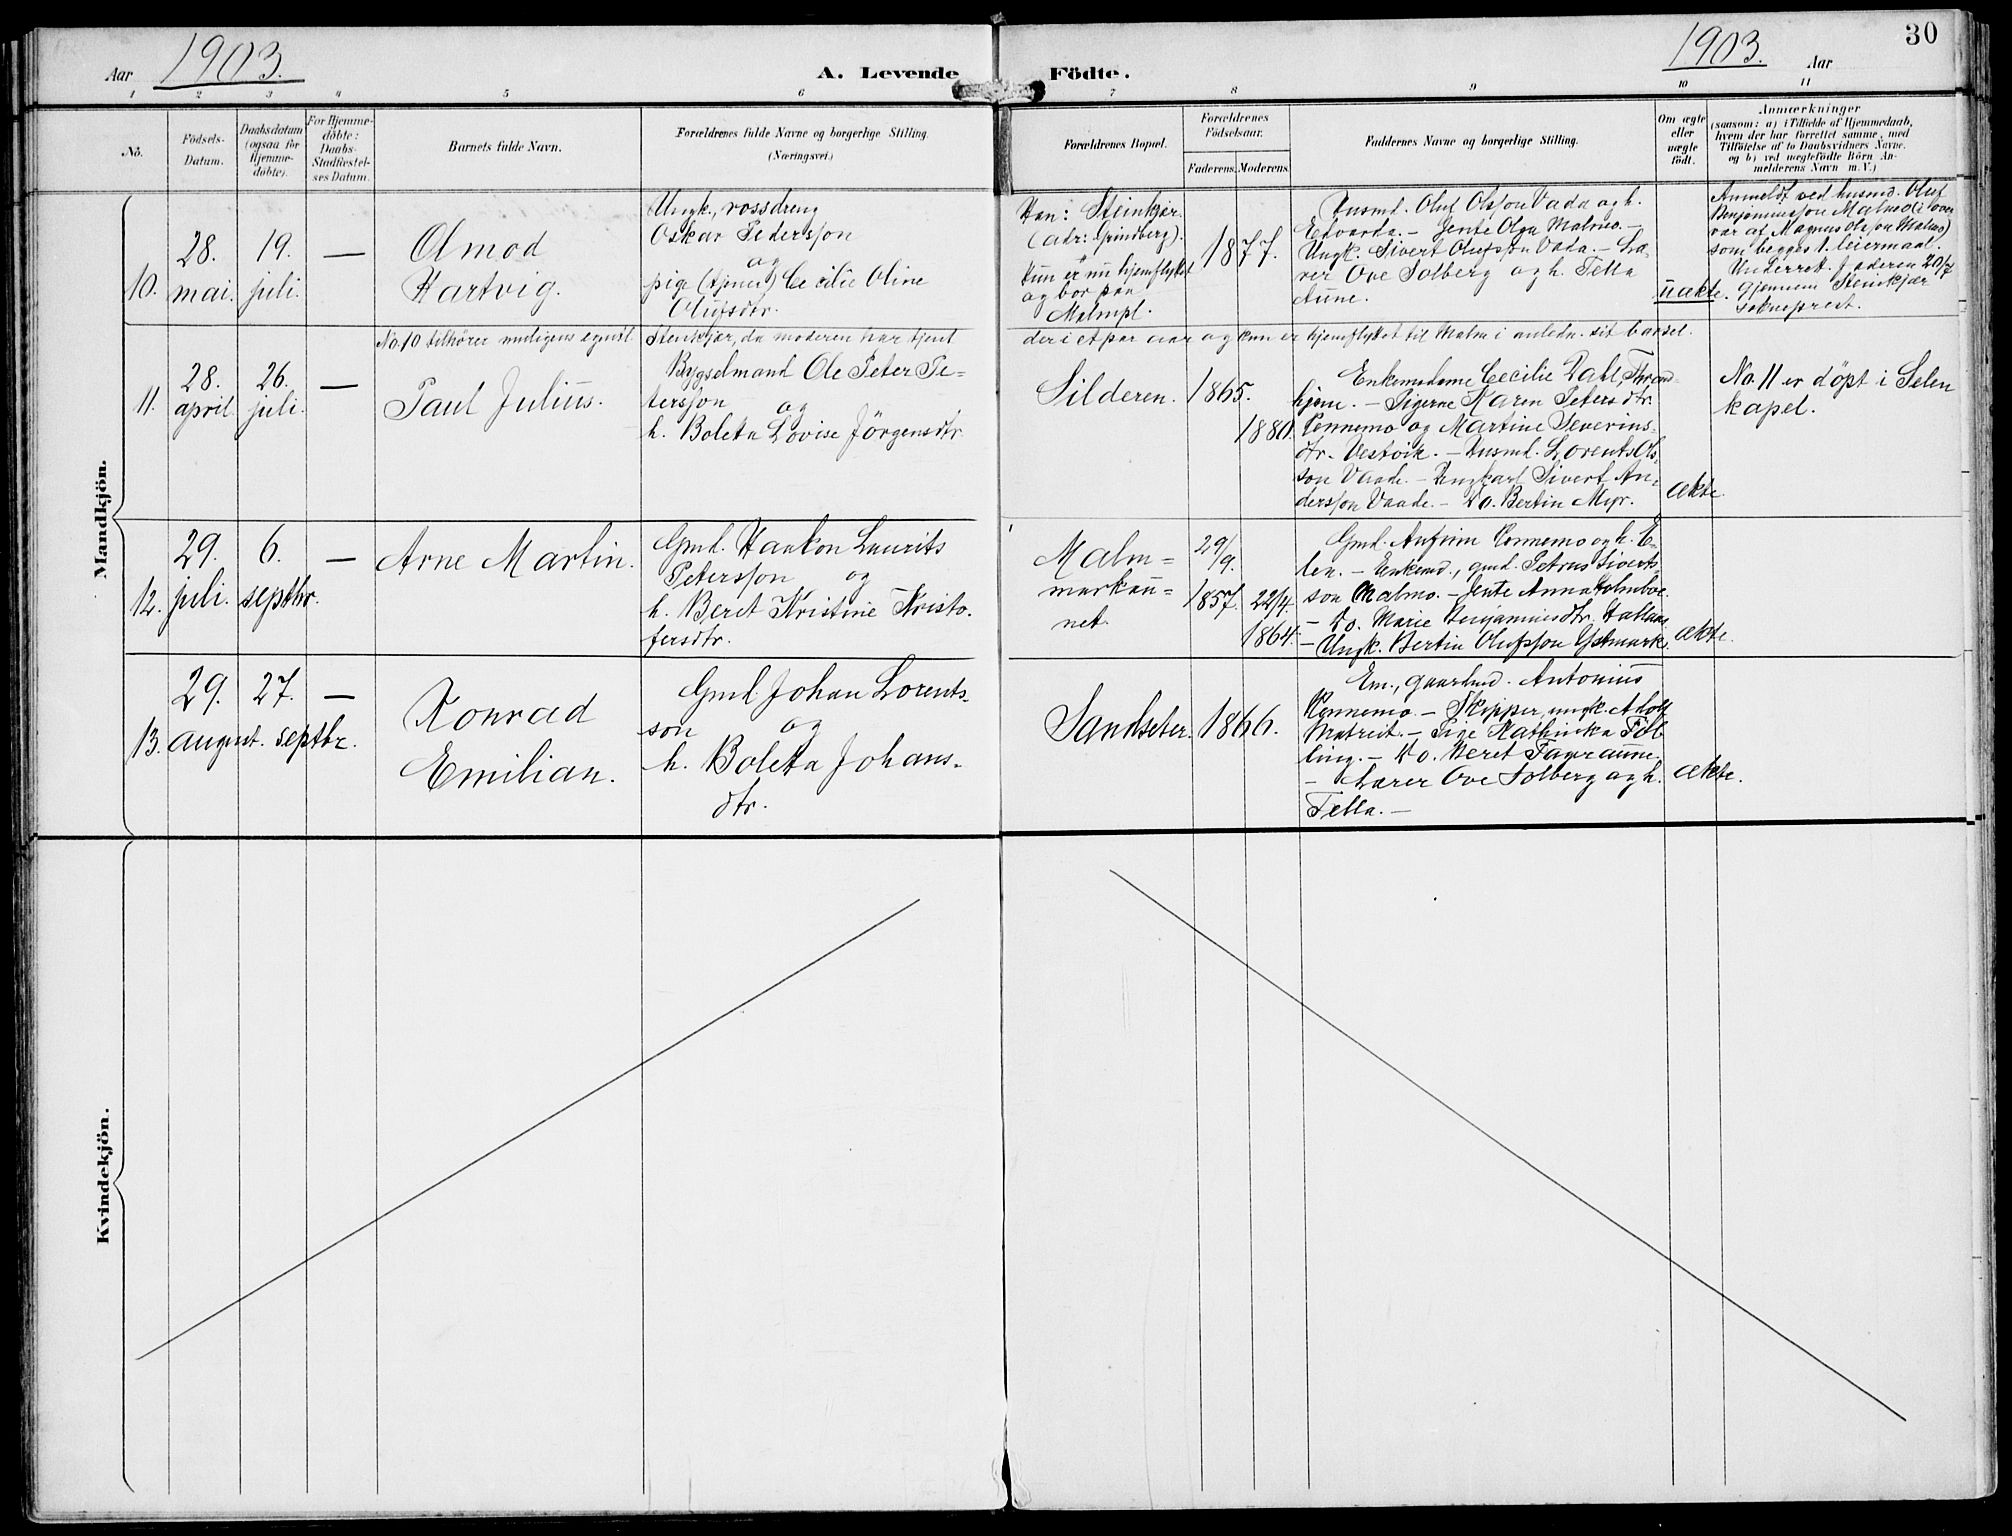 1903.
Aar
A. Levende
Födte.
1903.
Aar
30
1 2 3 4 5 6 7 8 9 10 11
No.
Födsels-
Datum.
Daabsdatum
(ogsaa for
Hjemme-
döbte).
For Hjemme-
döbte:
Daabs-
Stadfæstel-
ses Datum.
Barnets fulde Navn.
Forældrenes fulde Navne og borgerlige Stilling.
(Næringsvei.)
Forældrenes Bopæl.
Forældrenes
Födselsaar.
Faderens.
Moderens.
Faddernes Navne og borgerlige Stilling.
Om ægte
eller
uægte
födt.
Anmærkninger
(saasom: a) i Tilfælde af Hjemmedaab,
hvem der har forrettet samme, med
Tilföielse af to Daabsvidners Navne.
og b) ved uægtefödte Börn An-
melderens Navn m. V.)
Mandkjön.
10.
28.
mai.
19.
juli.
—
Olmod
Hartvig.
Ungk., vossdreng
Oskar Pedersson
og
pige (tjener) Cecilie Oline
Olufsdtr.
Han: Steinkjær.
(adr: Grindberg).
Hun er nu hjemflyttet
og bor paa
Malmpl.
1877.
Husmd. Oluf Olsson Vada og h.
Edvarda. — Jente Olga Malmo. —
Ungk. Sivert Olufsson Vada. — Læ-
rer Ove Solberg og h. Tella
Aune.
uækte.
Anmeldt ved husmd. Oluf
Benjaminsson Malmo (i over
vær af Magnus Olsson Malmo)
som begges 1. leiermaal.
Underret. faderen 20/7
gjennem Steinkjær
sokneprest.
No. 10 tilhører muligens egentl. Stenkjær, da moderen har tjent
der i et par aar og kun er hjemflyttet til Malm i anledn. sit barsel.
11.
28.
april.
26.
juli.
—
Paul Julius.
Bygselmand Ole Peter Pe-
tersson og
h. Boleta Lovise Jörgensdtr.
Silderen.
1865.
1880.
Enkemadame Cecilie Dahl, Thrond-
hjem. — Pigerne Karen Petersdtr.
Rennemo og Martine Severins-
dtr. Vestvik. — Husmd. Lorents Ols-
son Vaade. — Ungkarl Sivert An-
dersson Vaade. — Do. Bertin Myr.
ækte.
No. 11 er döpt i Selen
kapel.
12.
29.
juli.
6.
septbr.
—
Arne Martin.
Gmd. Haakon Laurits
Petersson og
h. Beret Kristine Kristo-
fersdtr.
Malm-
markau-
net.
29/9.
1857.
22/4.
1864.
Gmd. Anfinn Rennemo og h. E-
len. — Enkemd., gmd. Petrus Siverts-
son Malmo. — Jente Anna Holmboe.
— Do. Marie Benjaminsdtr.
— Ungk. Bertin Olufsson Ystmark.
ækte.
13.
29.
august.
27.
septbr.
—
Konrad
Emilian.
Gmd. Johan Lorents-
son og
h. Boleta Johans-
dtr.
Sandseter.
1866.
Em., gaardmd. Antonius
Rennemo. — Skipper, ungk. Adolf
— Pige Kathinka Föl-
ling. — Do. Beret Fageraune.
— Lærer Ove Solberg og h.
Tella. —
ækte.
Kvindekjön.